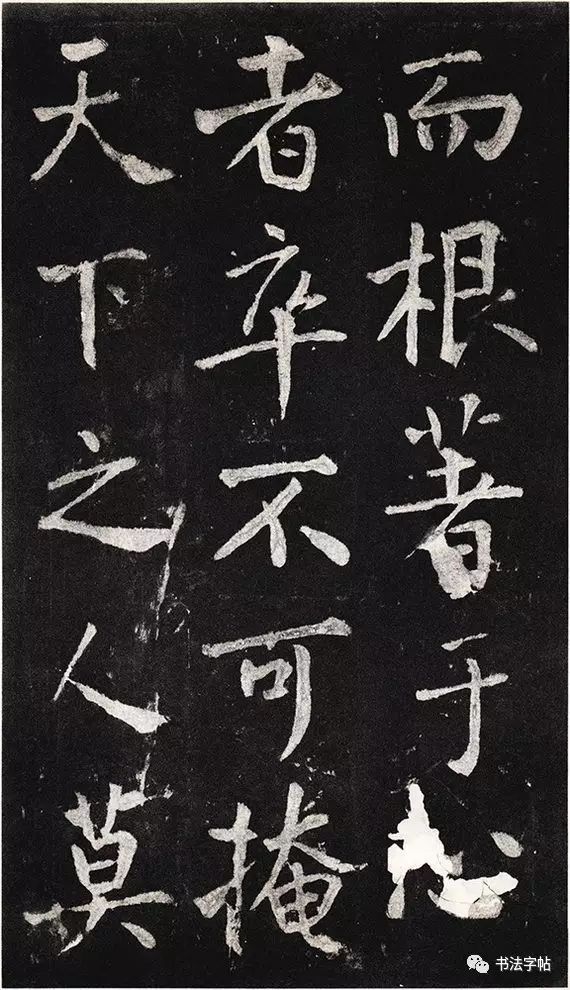 而根著于心
者卒不可掩
天下之人莫
书法字帖